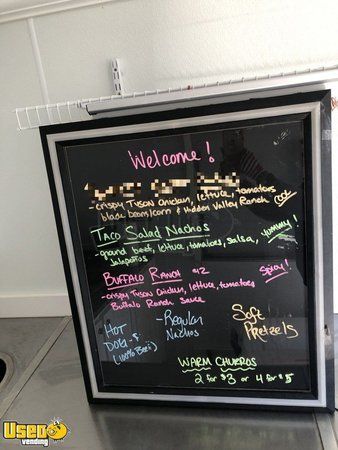 Welcome!
- crispy Tyson Chicken, lettuce, tomatoes
black beans/corn & Hidden Valley Ranch
Taco Salad Nachos
- ground beef, lettuce, tomatoes, salsa, Yummy!
Jalapeños
Buffalo Ranch
Spicy!
- crispy Tyson Chicken, lettuce, tomatoes
Buffalo Ranch sauce
Hot
Dog
(100% Beef)
- Regular
Nachos
Soft
Pretzels
Warm Churros
2 for $3 or 4 for $5
USED
vending